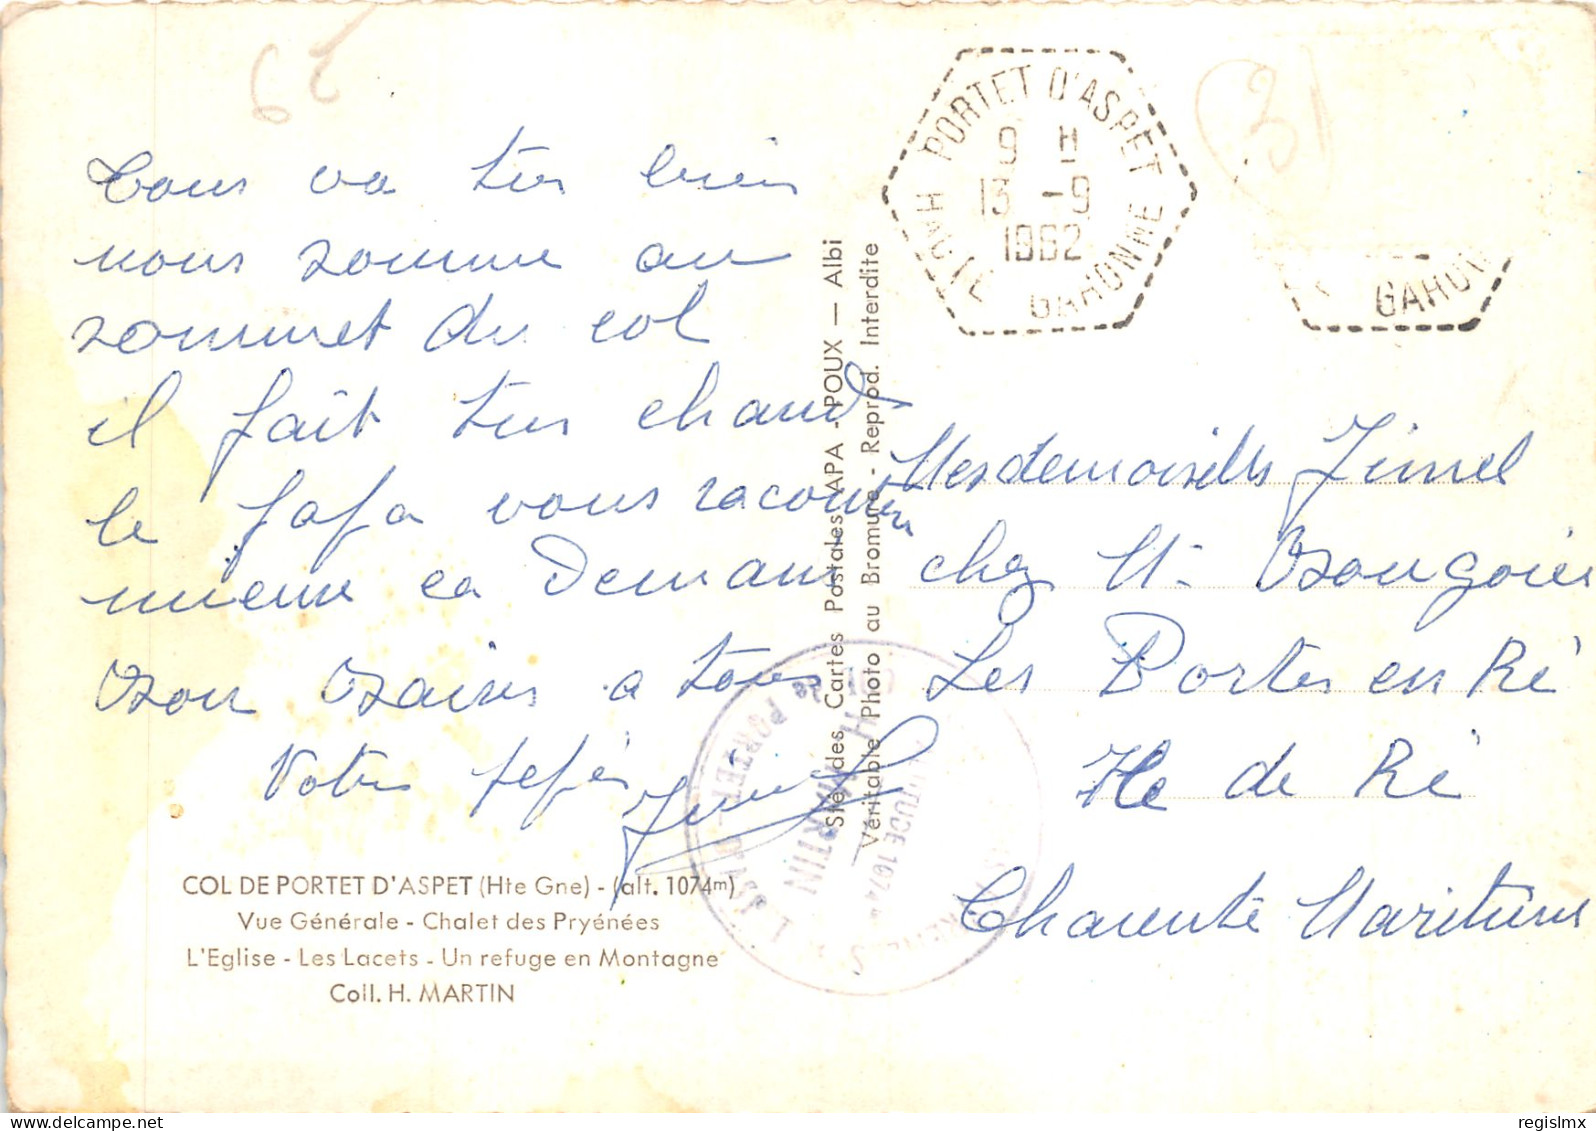 62
Tous va tres bien
nous somme au
sommet du col
il fait tres chaud
le papa vous racontera
mieux ca Demain
Bon Baises a tous
Votre pepé
COL DE PORTET D'ASPET (Hte Gne) - (alt. 1074m)
Vue Générale - Chalet des Pryénées
L'Eglise - Les Lacets - Un refuge en Montagne
Coll. H. MARTIN
Sté des Cartes Postales APA - POUX — Albi
Véritable Photo au Bromure - Reprod. Interdite
PORTET D'ASPET
9 H
13 -9
1962
HAUTE GARONNE
31
GARON
Mesdemoiselles
chez Mr
Les Portes en Ré
Ile de Ré
Charente Maritime
de PORTET-D'ASPET
H. MARTIN
ALTITUDE 1074 m
regislmx